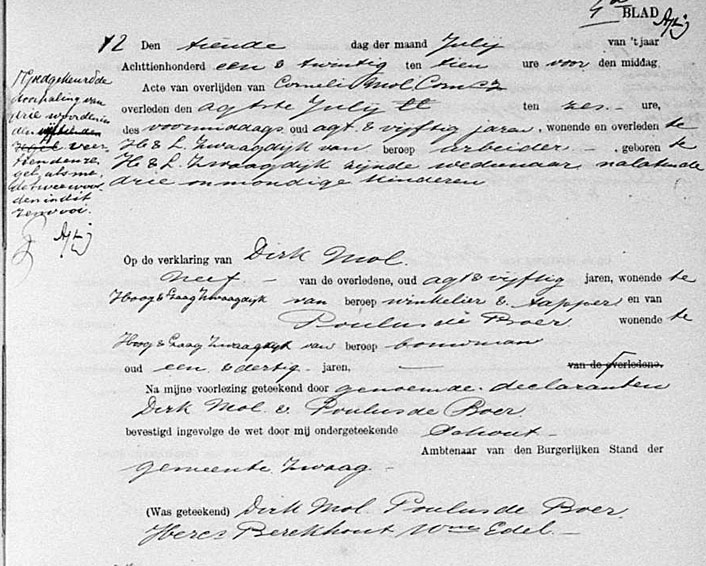 4de BLAD
12 Den tiende dag der maand July van 't jaar
Achttienhonderd een & twintig ten tien ure voor den middag,
Acte van overlijden van Cornelis Mol Cornsz
overleden den agtste July ten zes ure,
des voormiddags oud agt & vijftig jaren, wonende en overleden te
H & L Zwaagdyk van beroep arbeider, geboren te
H & L Zwaagdyk zijnde weduenaar nalatende
drie onmondige kinderen
Op de verklaring van Dirk Mol.
Neef van de overledene, oud agt & vijftig jaren, wonende te
Hoog & Laag Zwaagdijk van beroep winkelier & tapper en van
Poulus de Boer wonende te
Hoog & Laag Zwaagdyk van beroep bouwman
oud een & dertig jaren, van de overledene.
Na mijne voorlezing geteekend door genoemde declaranten
Dirk Mol & Poulus de Boer
bevestigd ingevolge de wet door mij ondergeteekende Schout
Ambtenaar van den Burgerlijken Stand der
gemeente Zwaag
(Was geteekend) Dirk Mol Poulus de Boer
Berckhout Wm Edel
doorhaling van
drie woorden in